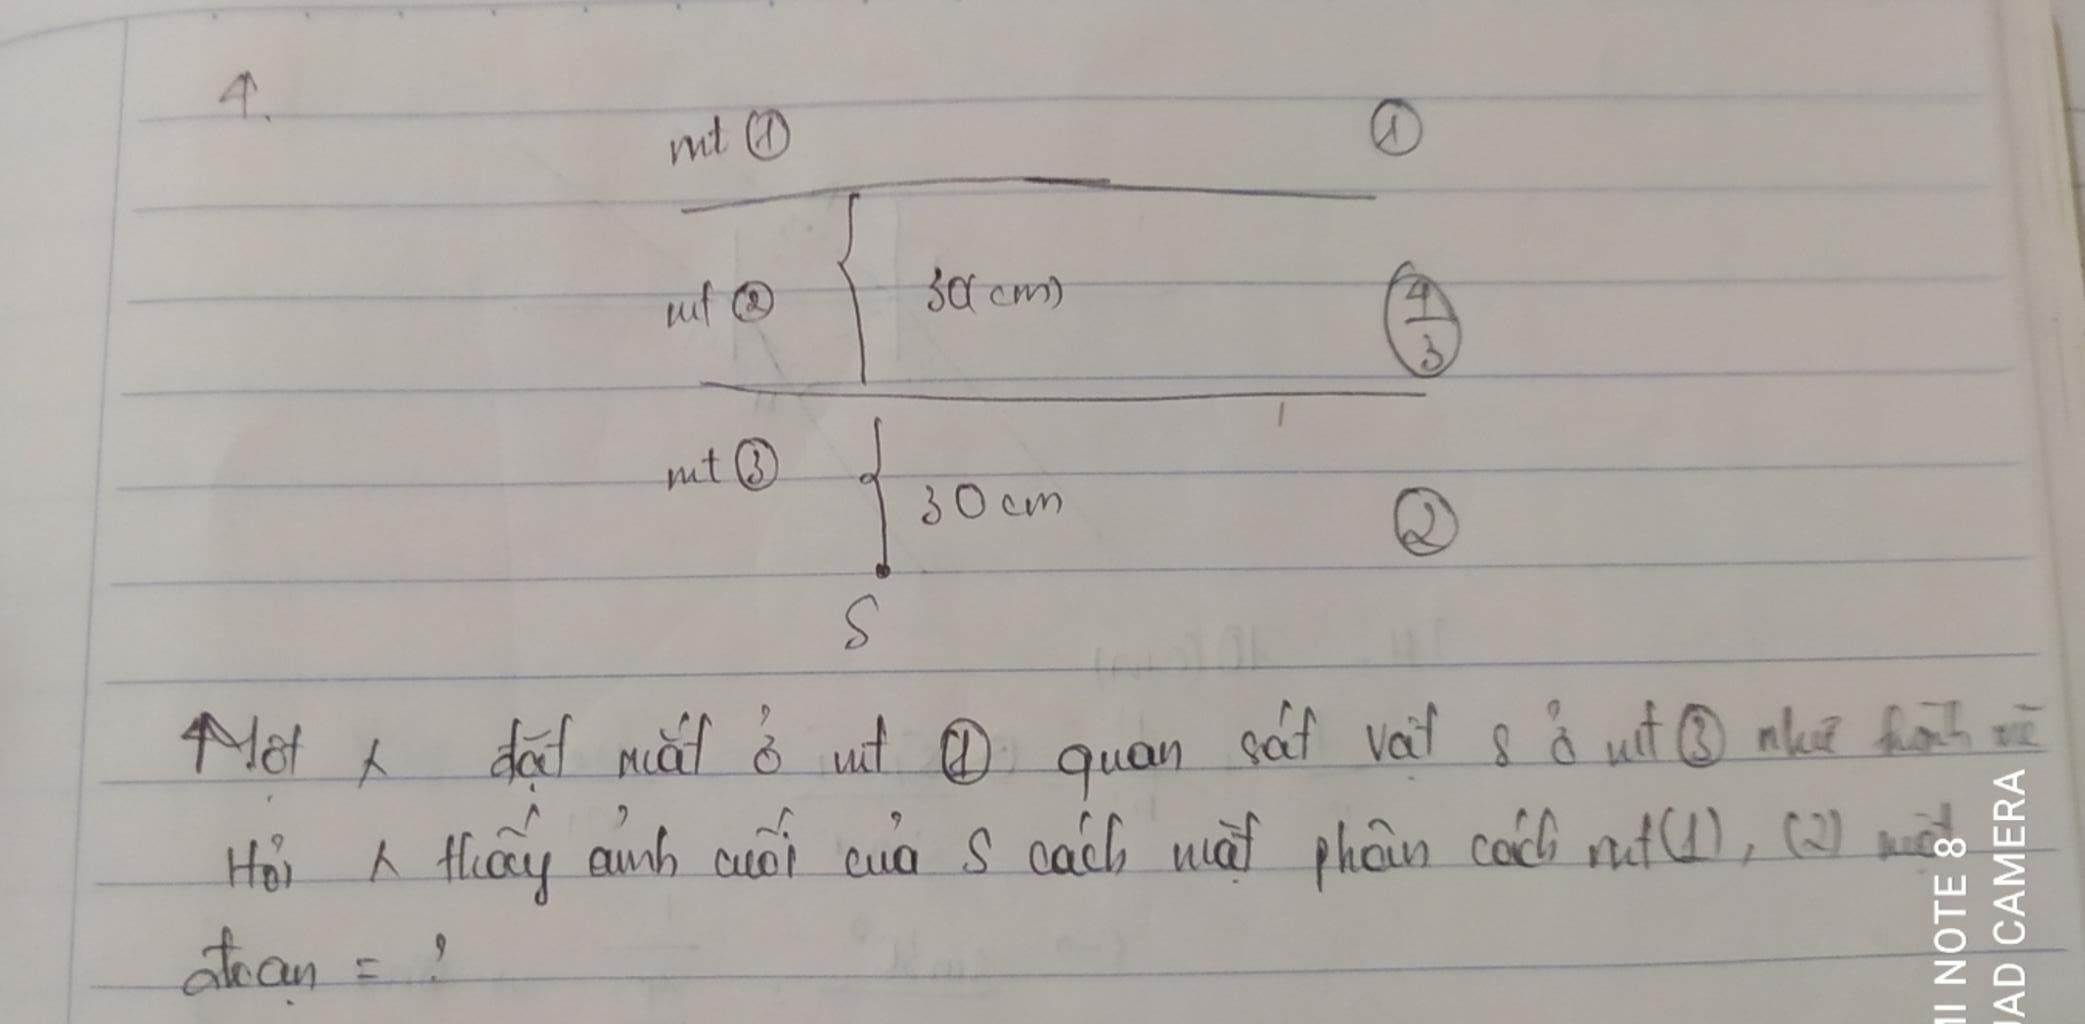 4.
mt ① ①
mt ② 30(cm) 4/3
mt ③ 30 cm ②
S
Một λ đặt mắt ở mt ① quan sát vật S ở mt ③ như hình vẽ
Hỏi λ thấy ảnh cuối của S cách mặt phân cách mt(1), (2) một
đoạn = ?
MI NOTE 8
UAD CAMERA